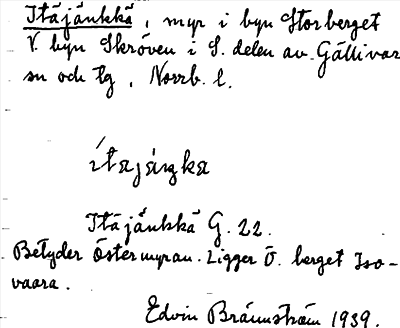 Itäjänkkä, myr i byn Storberget
V. byn Skröven i S. delen av Gällivar
sn och tg, Norrb. l.
ítajáŋka
Itäjänkkä G. 22.
Betyder Östermyran. Ligger Ö. berget Iso-
vaara.
Edvin Brännström 1939.